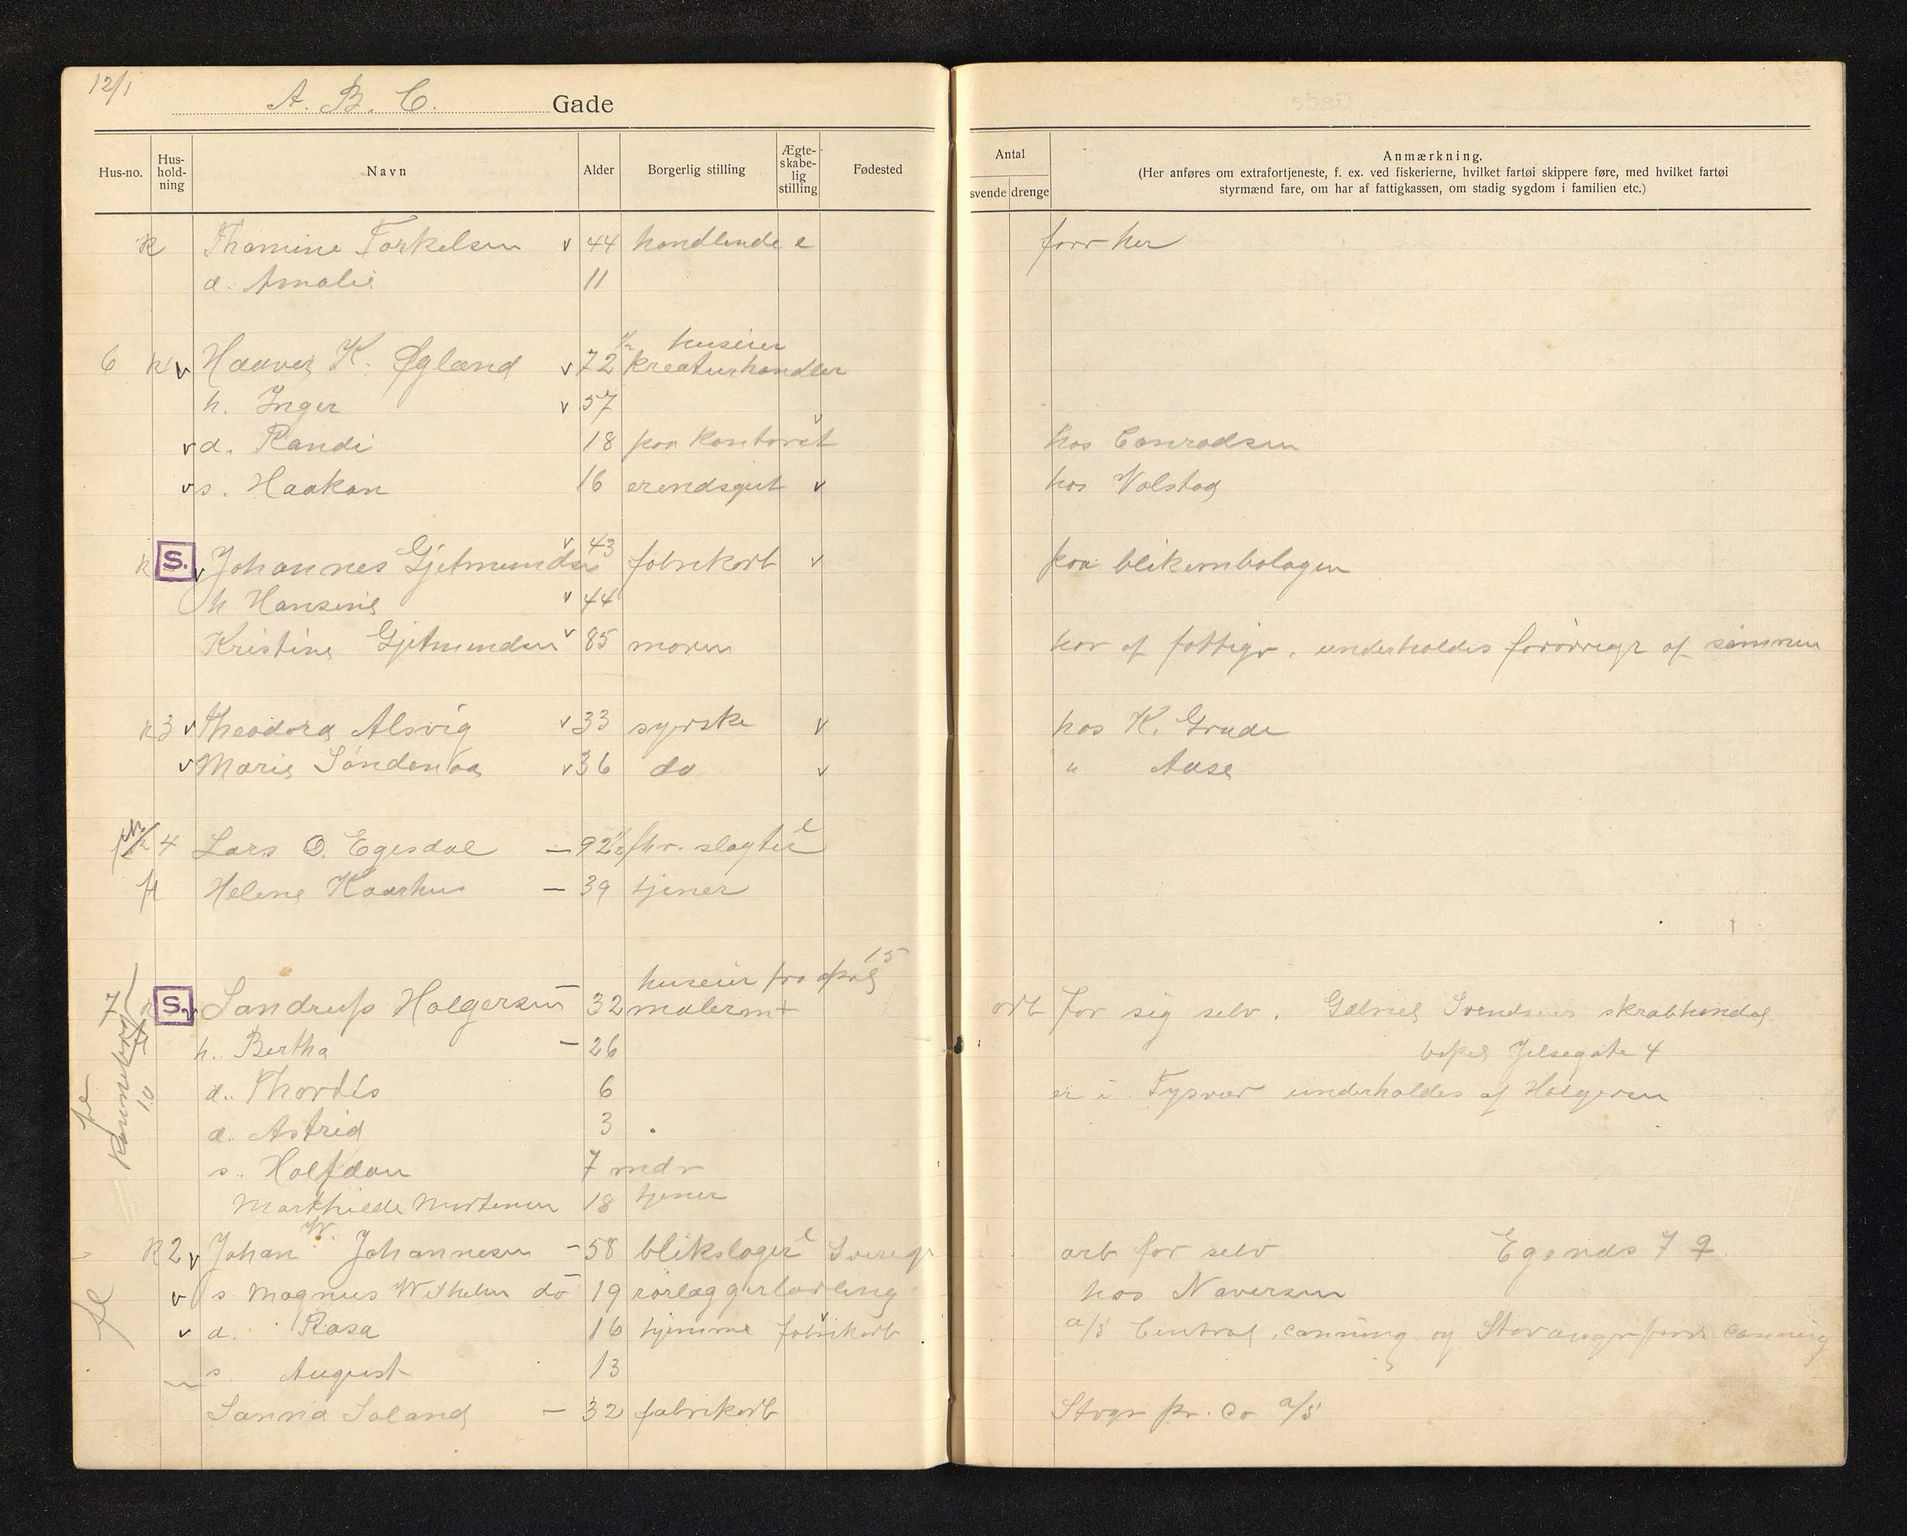 12/1
A. B. C. Gade
Hus-no. Hus-hold-ning Navn Alder Borgerlig stilling Ægte-skabe-lig stilling Fødested Antal svende drenge Anmærkning.
(Her anføres om extrafortjeneste, f. ex. ved fiskerierne, hvilket fartøi skippere føre, med hvilket fartøi
styrmænd fare, om har af fattigkassen, om stadig sygdom i familien etc.)
k Thomine Torkelsen v 44 handlende e forr her
d. Amalie 11
huseier
6 k v Haaver K. Øgland v 72 kreaturhandler
h. Inger v 57
v d. Randi 18 paa kontoret v hos Conradsen
v s. Haakon 16 erendsgut v hos Valstad
k S. v Johannes Gjetmundsen v 43 fabrikarb v paa blikembalagen
h Hansine v 44
Kristine Gjetmundsen v 85 moren har af fattigv. underholdes forøvrigt af sønnen
k 3 v Theodora Alsvig v 33 syerske v hos K. Grude
v Marie Søndenaa v 36 do v " Aase
4 Lars O. Egesdal — 92 1/2 fhv. slagter e
fl Helene Kaarhus — 39 tjener
huseier fra april 15
7 k S. v Sandrup Holgersen — 32 malerm + arb for sig selv. Gabriel Svendsens skrabhandel
h. Bertha — 26 bopæl Jelsegate 4
d. Thordis 6 er i Tysvær underholdes af Holgersen
d. Astrid 3 .
s. Halfdan 7 mdr
Mathilde Mortensen 18 tjener
10
k 2 v Johan W. Johannesen — 58 blikslager e Sverige arb for selv Egends 7 9
v s. Magnus Wilhelm do 19 rørlæggerlærling hos Naversen
v d. Rosa 16 hjemme fabrikarb v a/s Central canning og Stavangerfjord canning
s. August 13
Sanna Soland — 32 fabrikarb Stvgr pr. Co a/s
fl